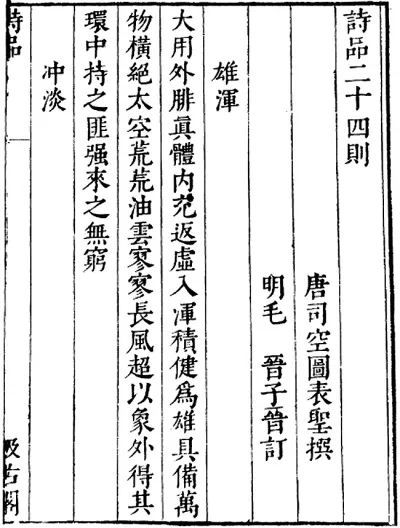 詩品二十四則
唐司空圖表聖撰
明毛　晉子晉訂
雄渾
大用外腓眞體內充返虛入渾積健爲雄具備萬
物橫絕太空荒荒油雲寥寥長風超以象外得其
環中持之匪强來之無窮
冲淡
詩品
汲古閣